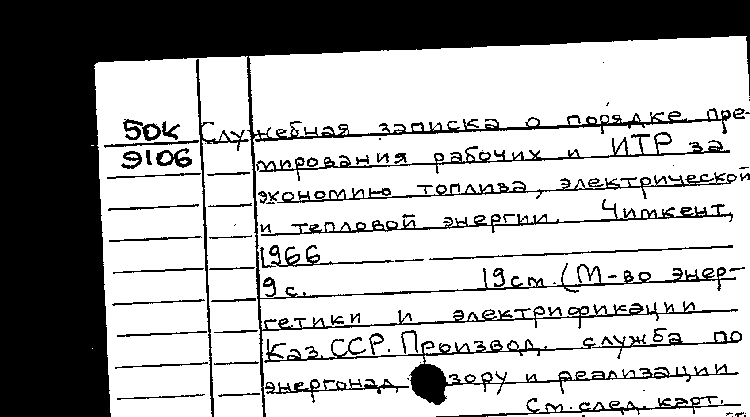 50К Служебная записка о порядке пре-
9106 мирования рабочих и ИТР за
экономию топлива, электрической
и тепловой энергии. Чимкент,
1966.
9 с. 19 см. (М-во энер-
гетики и электрификации
Каз. ССР. Производ. служба по
энергонад зору и реализации
См. след. карт.